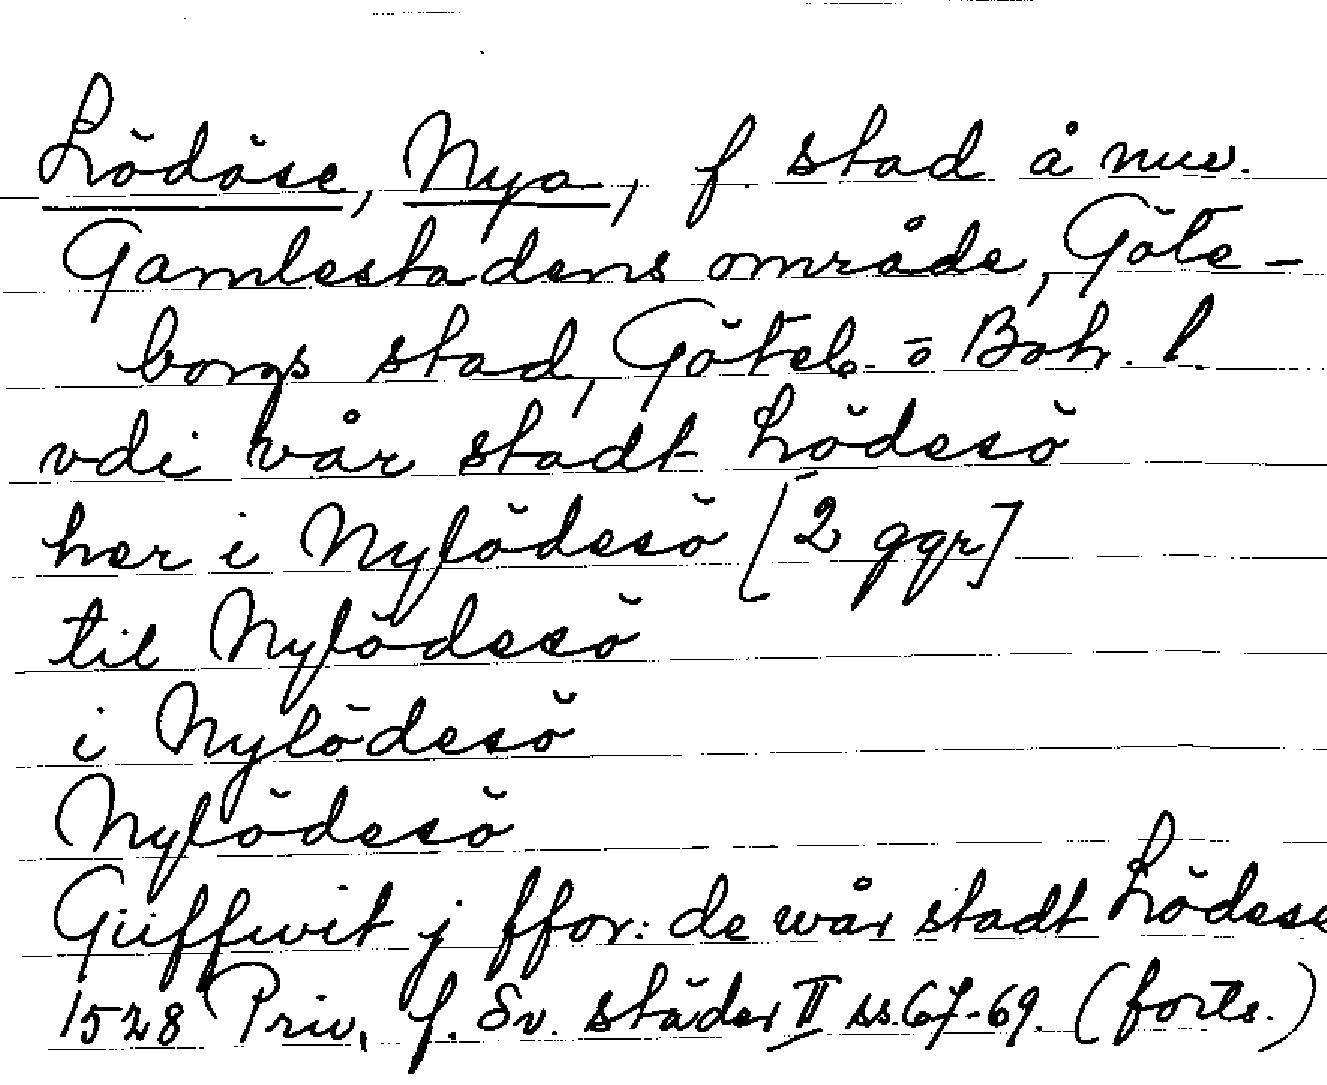 Lödöse, Nya, f. stad å nuv.
Gamlestadens område, Göte-
borgs stad, Göteb. o Boh. l.
vdi vår stadt Lödesö
her i Nylödesö [2 ggr]
til Nylödesö
i Nylödesö
Nylödesö
Giiffwit j ffor: de wår stadt Lödese
1528 Priv. f. Sv. städer II ss. 67-69. (forts.)